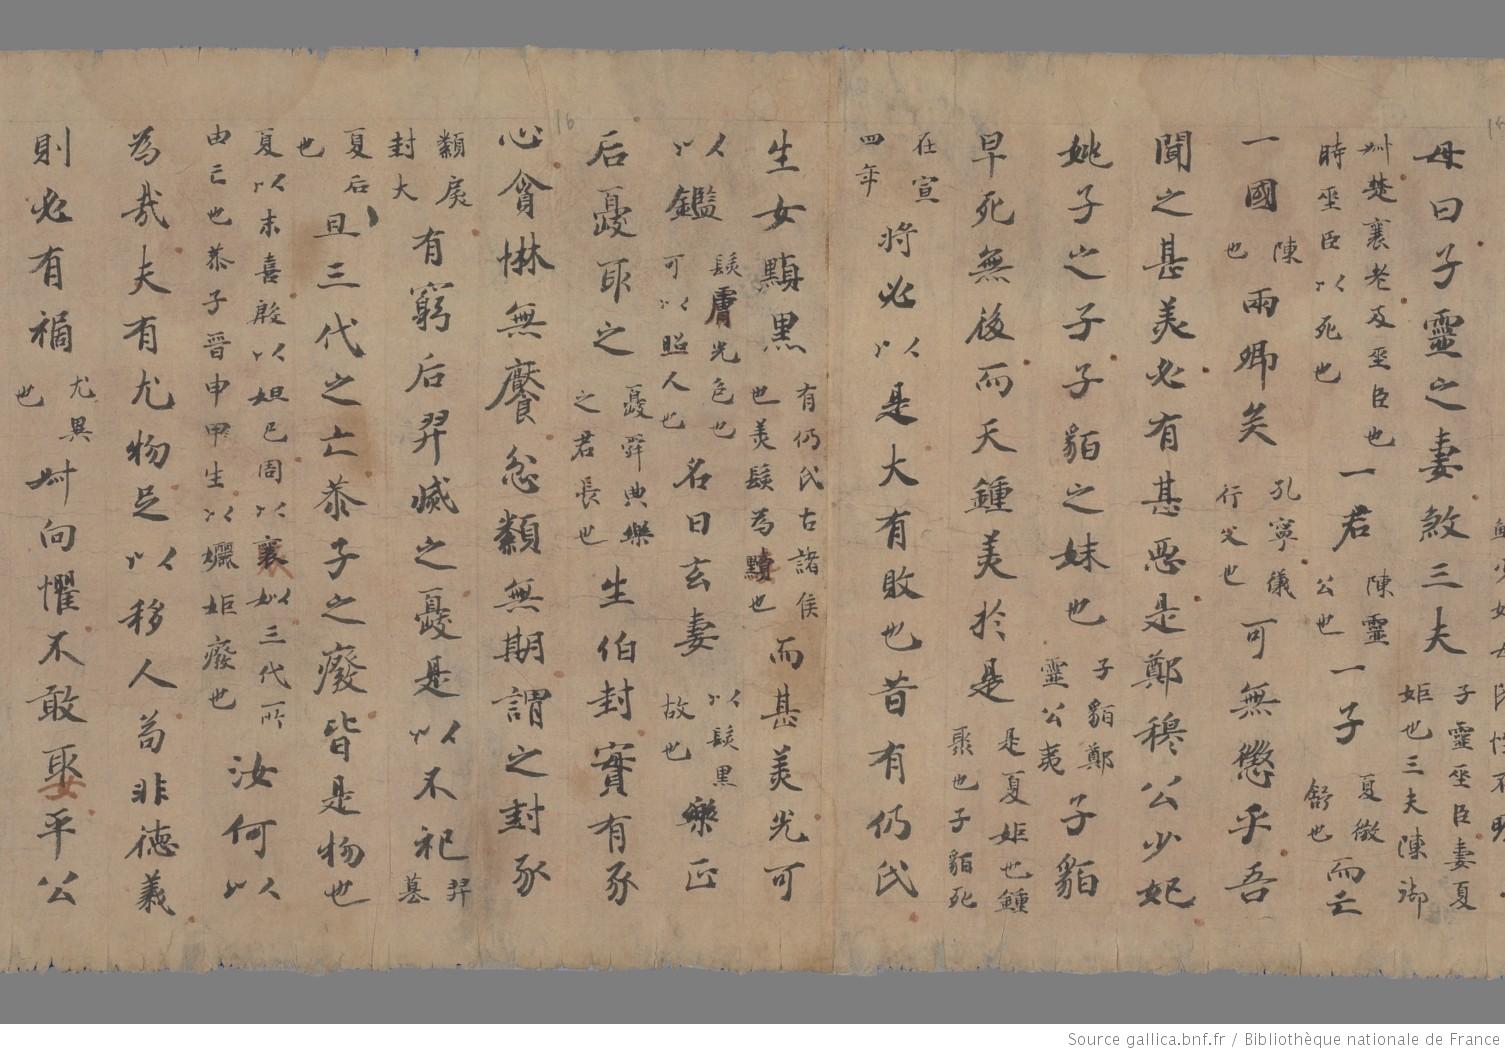 母曰子靈之妻煞三夫子靈巫臣妻夏姬也三夫陳御
叔楚襄老及巫臣也時巫臣以死也一君陳靈公也一子夏徵舒也而亡
一國陳也兩卿矣孔寧儀行父也可無懲乎吾
聞之甚美必有甚惡是鄭穆公少妃
姚子之子子貉之妹也子貉鄭靈公夷子貉
早死無後而天鍾美於是是夏姬也鍾聚也子貉死
在宣四年將必以是大有敗也昔有仍氏
生女黰黑有仍氏古諸侯也美髮為黰也而甚美光可
以鑑髮膚光色也可以照人也名曰玄妻以髮黑故也樂正
后夔取之夔舜典樂之君長也生伯封實有豕
心貪惏無饜忿纇無期謂之封豕
纇戾封大有窮后羿滅之夔是以不祀羿墓
夏后也且三代之亡恭子之廢皆是物也
夏以末喜殷以妲己周以襃姒三代所由亡也恭子晉申甲生以孋姬廢也汝何以
為哉夫有尤物足以移人苟非德義
則必有禍尤異也叔向懼不敢娶平公
16
Source gallica.bnf.fr / Bibliothèque nationale de France